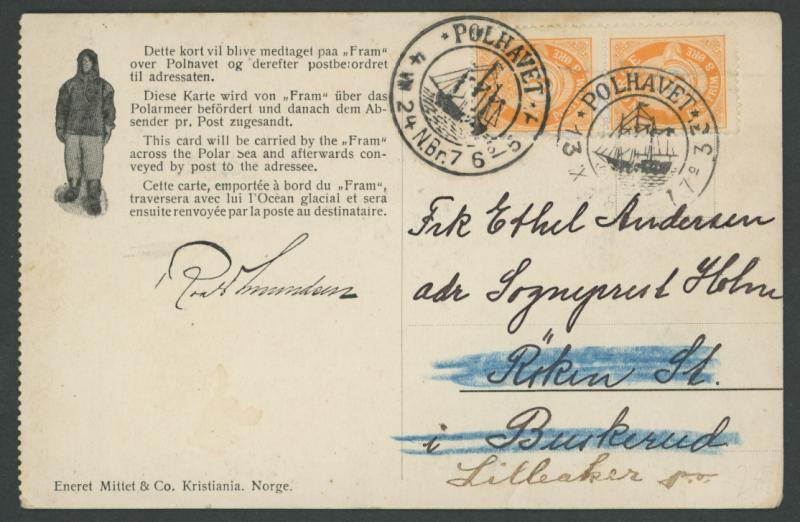 Dette kort vil blive medtaget paa „Fram“
over Polhavet og derefter postbe:ordret
til adressaten.
Diese Karte wird von „Fram“ über das
Polarmeer befördert und danach dem Ab-
sender pr. Post zugesandt.
This card will be carried by the „Fram“
across the Polar Sea and afterwards con-
veyed by post to the adressee.
Cette carte, emportée à bord du „Fram“,
traversera avec lui l'Océan glacial et sera
ensuite renvoyée par la poste au destinataire.
Roald Amundsen
Eneret Mittet & Co. Kristiania. Norge.
POLHAVET
4 VII 24 N.Br. 76
POLHAVET
13 X
3 ØRE
Frk Ethel Andersen
adr Sogneprest Holm
Röken St.
i Buskerud
Lilleaker p.o.